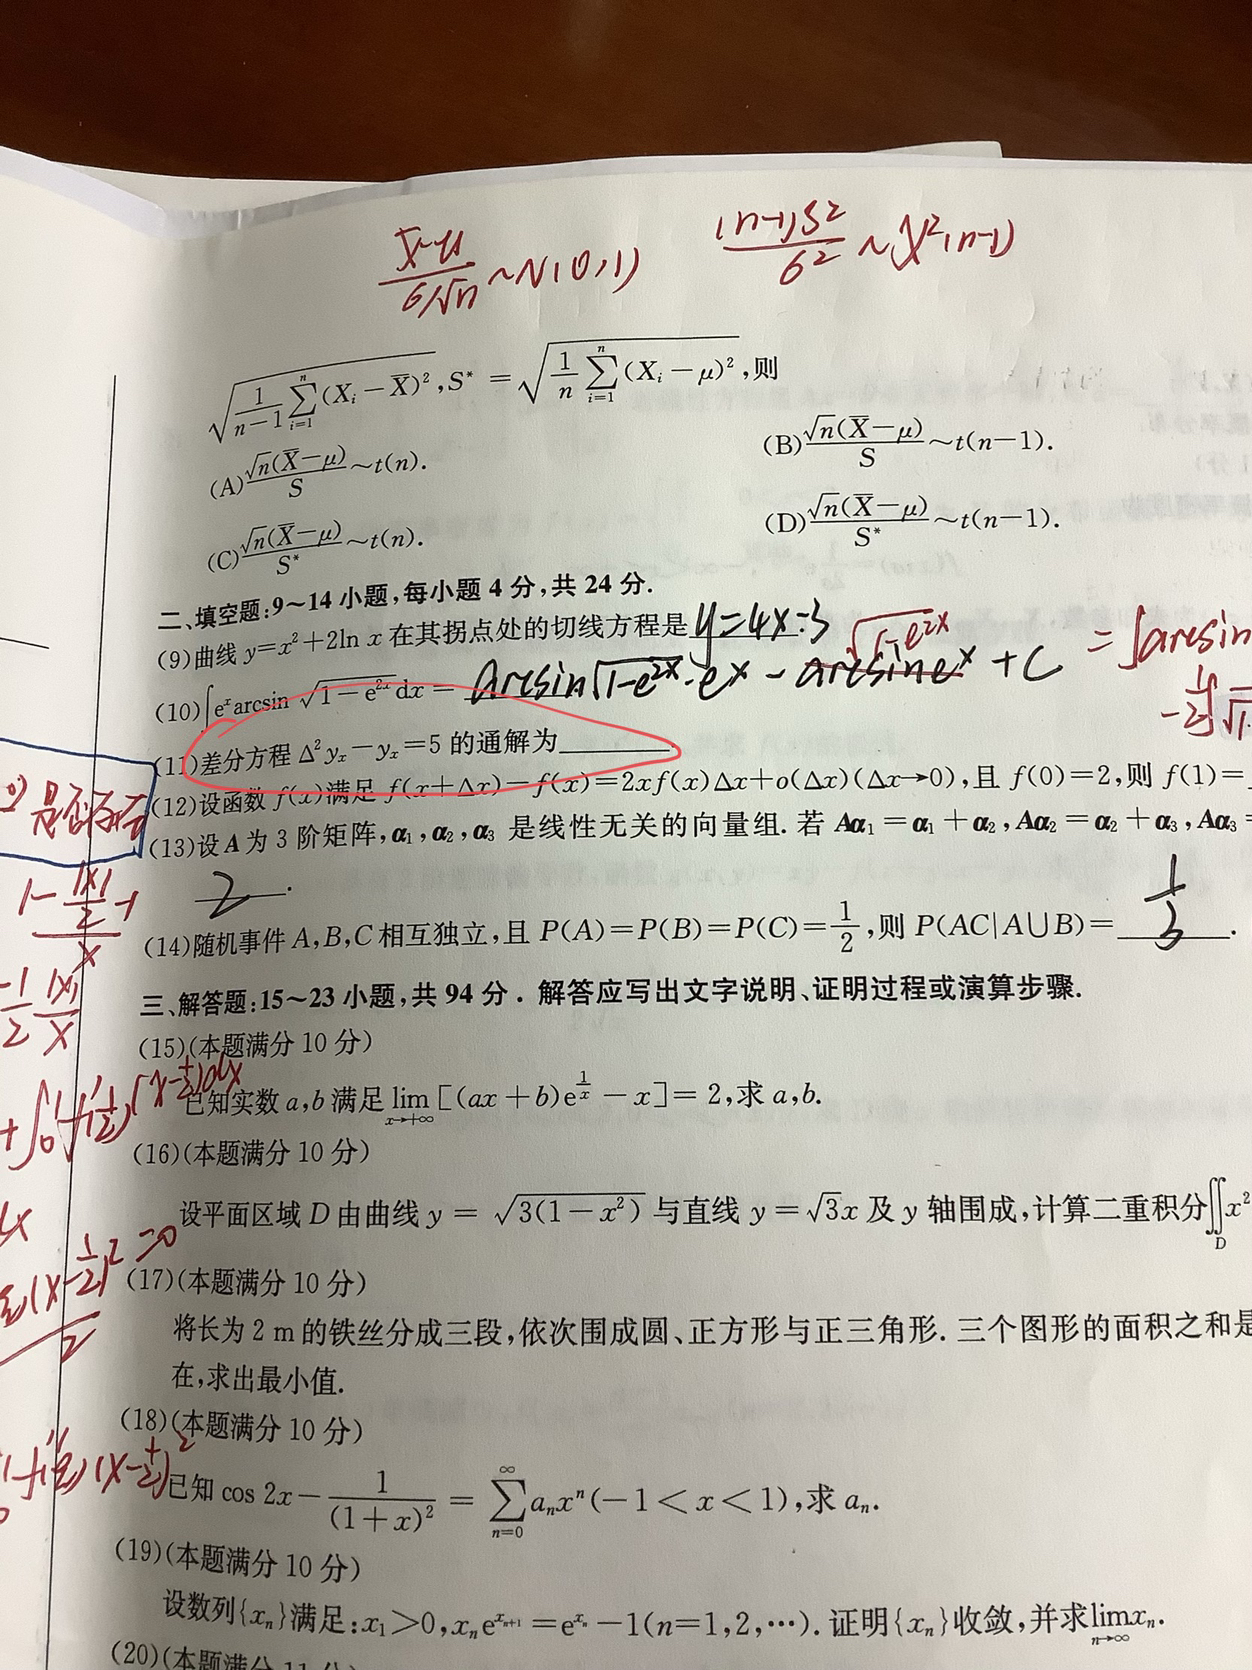 (X̄-μ)/(σ/√n) ~ N(0,1)
(n-1)S²/σ² ~ χ²(n-1)
√(1/(n-1) ∑_{i=1}^{n}(X_i-X̄)²), S* = √(1/n ∑_{i=1}^{n}(X_i-μ)²), 则
(A) √n(X̄-μ)/S ~ t(n).
(B) √n(X̄-μ)/S ~ t(n-1).
(C) √n(X̄-μ)/S* ~ t(n).
(D) √n(X̄-μ)/S* ~ t(n-1).
二、填空题:9~14 小题,每小题 4 分,共 24 分.
(9)曲线 y=x²+2ln x 在其拐点处的切线方程是 y=4x-3
(10)∫eˣarcsin √(1-e²ˣ) dx = arcsin√(1-e²ˣ)·eˣ - arcsineˣ + C
√(1-e²ˣ)
=∫arcsin
(11)差分方程 Δ²yₓ-yₓ=5 的通解为______.
(12)设函数 f(x)满足 f(x+Δx)-f(x)=2xf(x)Δx+o(Δx)(Δx→0),且 f(0)=2,则 f(1)=
(13)设 A 为 3 阶矩阵,α₁,α₂,α₃ 是线性无关的向量组. 若 Aα₁=α₁+α₂,Aα₂=α₂+α₃,Aα₃=
2.
(14)随机事件 A,B,C 相互独立,且 P(A)=P(B)=P(C)=1/2,则 P(AC|A∪B)= 1/3.
三、解答题:15~23 小题,共 94 分. 解答应写出文字说明、证明过程或演算步骤.
(15)(本题满分 10 分)
已知实数 a,b 满足 lim_{x→+∞}[(ax+b)e^{1/x}-x]=2,求 a,b.
(16)(本题满分 10 分)
设平面区域 D 由曲线 y=√(3(1-x²)) 与直线 y=√3x 及 y 轴围成,计算二重积分∬_D x²
(17)(本题满分 10 分)
将长为 2 m 的铁丝分成三段,依次围成圆、正方形与正三角形. 三个图形的面积之和是
在,求出最小值.
(18)(本题满分 10 分)
已知 cos 2x - 1/(1+x)² = ∑_{n=0}^{∞} aₙxⁿ(-1<x<1),求 aₙ.
(19)(本题满分 10 分)
设数列{xₙ}满足:x₁>0,xₙe^{x_{n+1}}=e^{xₙ}-1(n=1,2,…). 证明{xₙ}收敛,并求lim_{n→∞}xₙ.
(20)